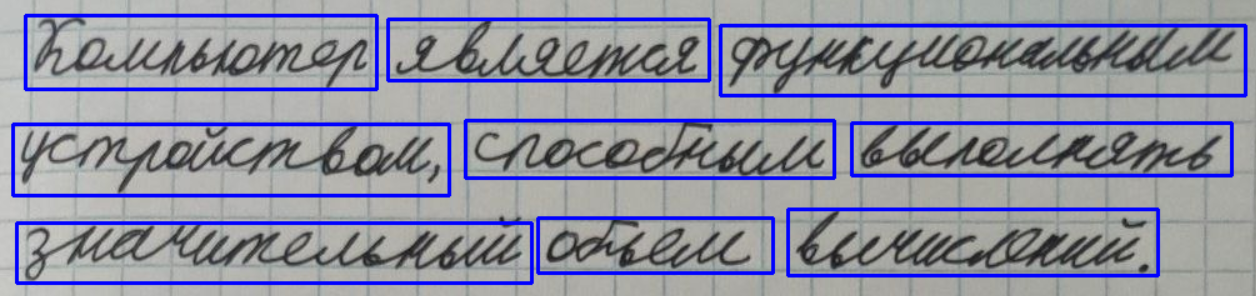 Компьютер является функциональным
устройством, способным выполнять
значительный объем вычислений.